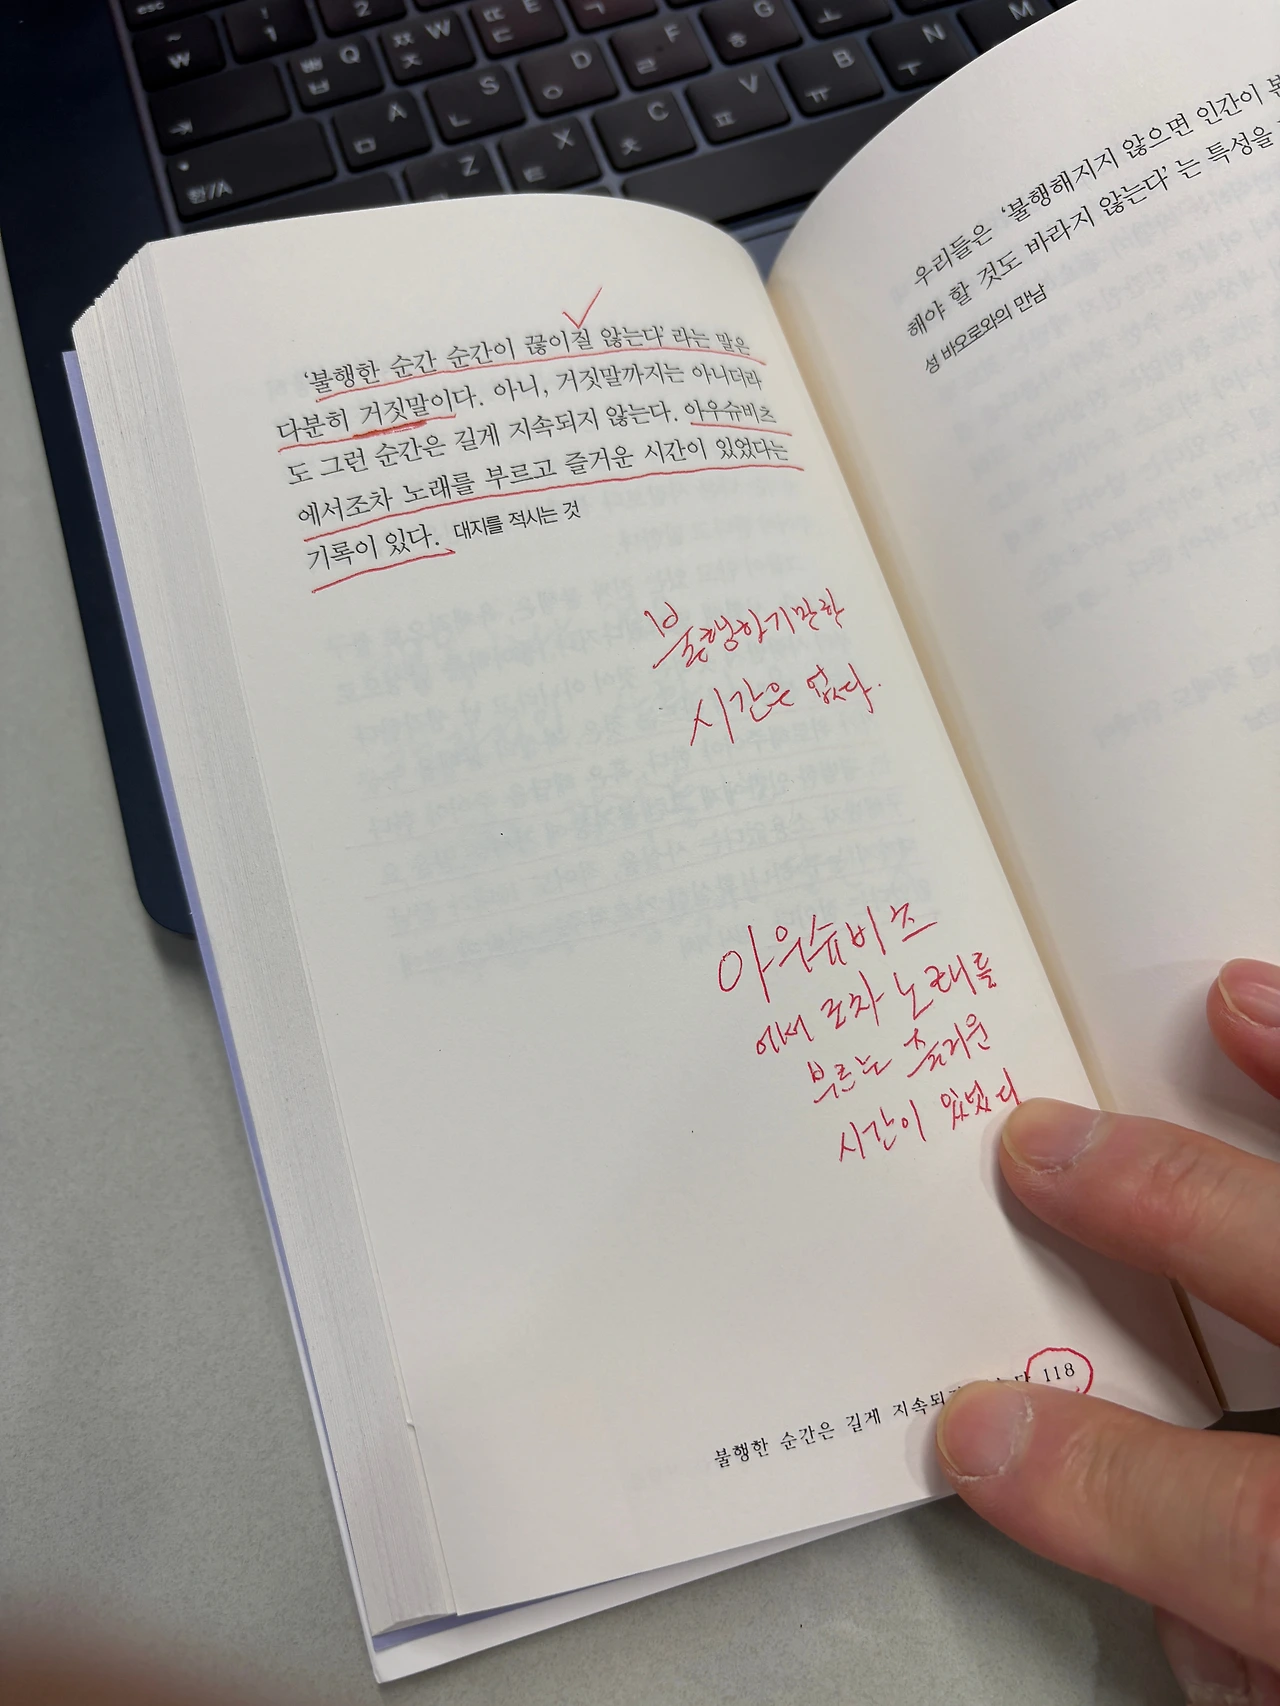 esc
~ ₩
! 1
2
ㅃ ㅂ Q
ㅉ ㅈ W
ㄸ ㄷ E
ㄱ
ㅁ A
ㄴ S
ㅇ D
ㄹ F
ㅎ G
ㅗ
한/A
Z
ㅌ X
ㅊ C
ㅍ V
ㅠ B
ㅜ N
M
'불행한 순간 순간이 끊이질 않는다' 라는 말은
다분히 거짓말이다. 아니, 거짓말까지는 아니더라
도 그런 순간은 길게 지속되지 않는다. 아우슈비츠
에서조차 노래를 부르고 즐거운 시간이 있었다는
기록이 있다. 대지를 적시는 것
불행하기만한
시간은 없다.
아우슈비츠
에서 조차 노래를
부르는 즐거운
시간이 있었다
불행한 순간은 길게 118
우리들은 '불행해지지 않으면 인간이
해야 할 것도 바라지 않는다' 는 특성을
성 바오로와의 만남